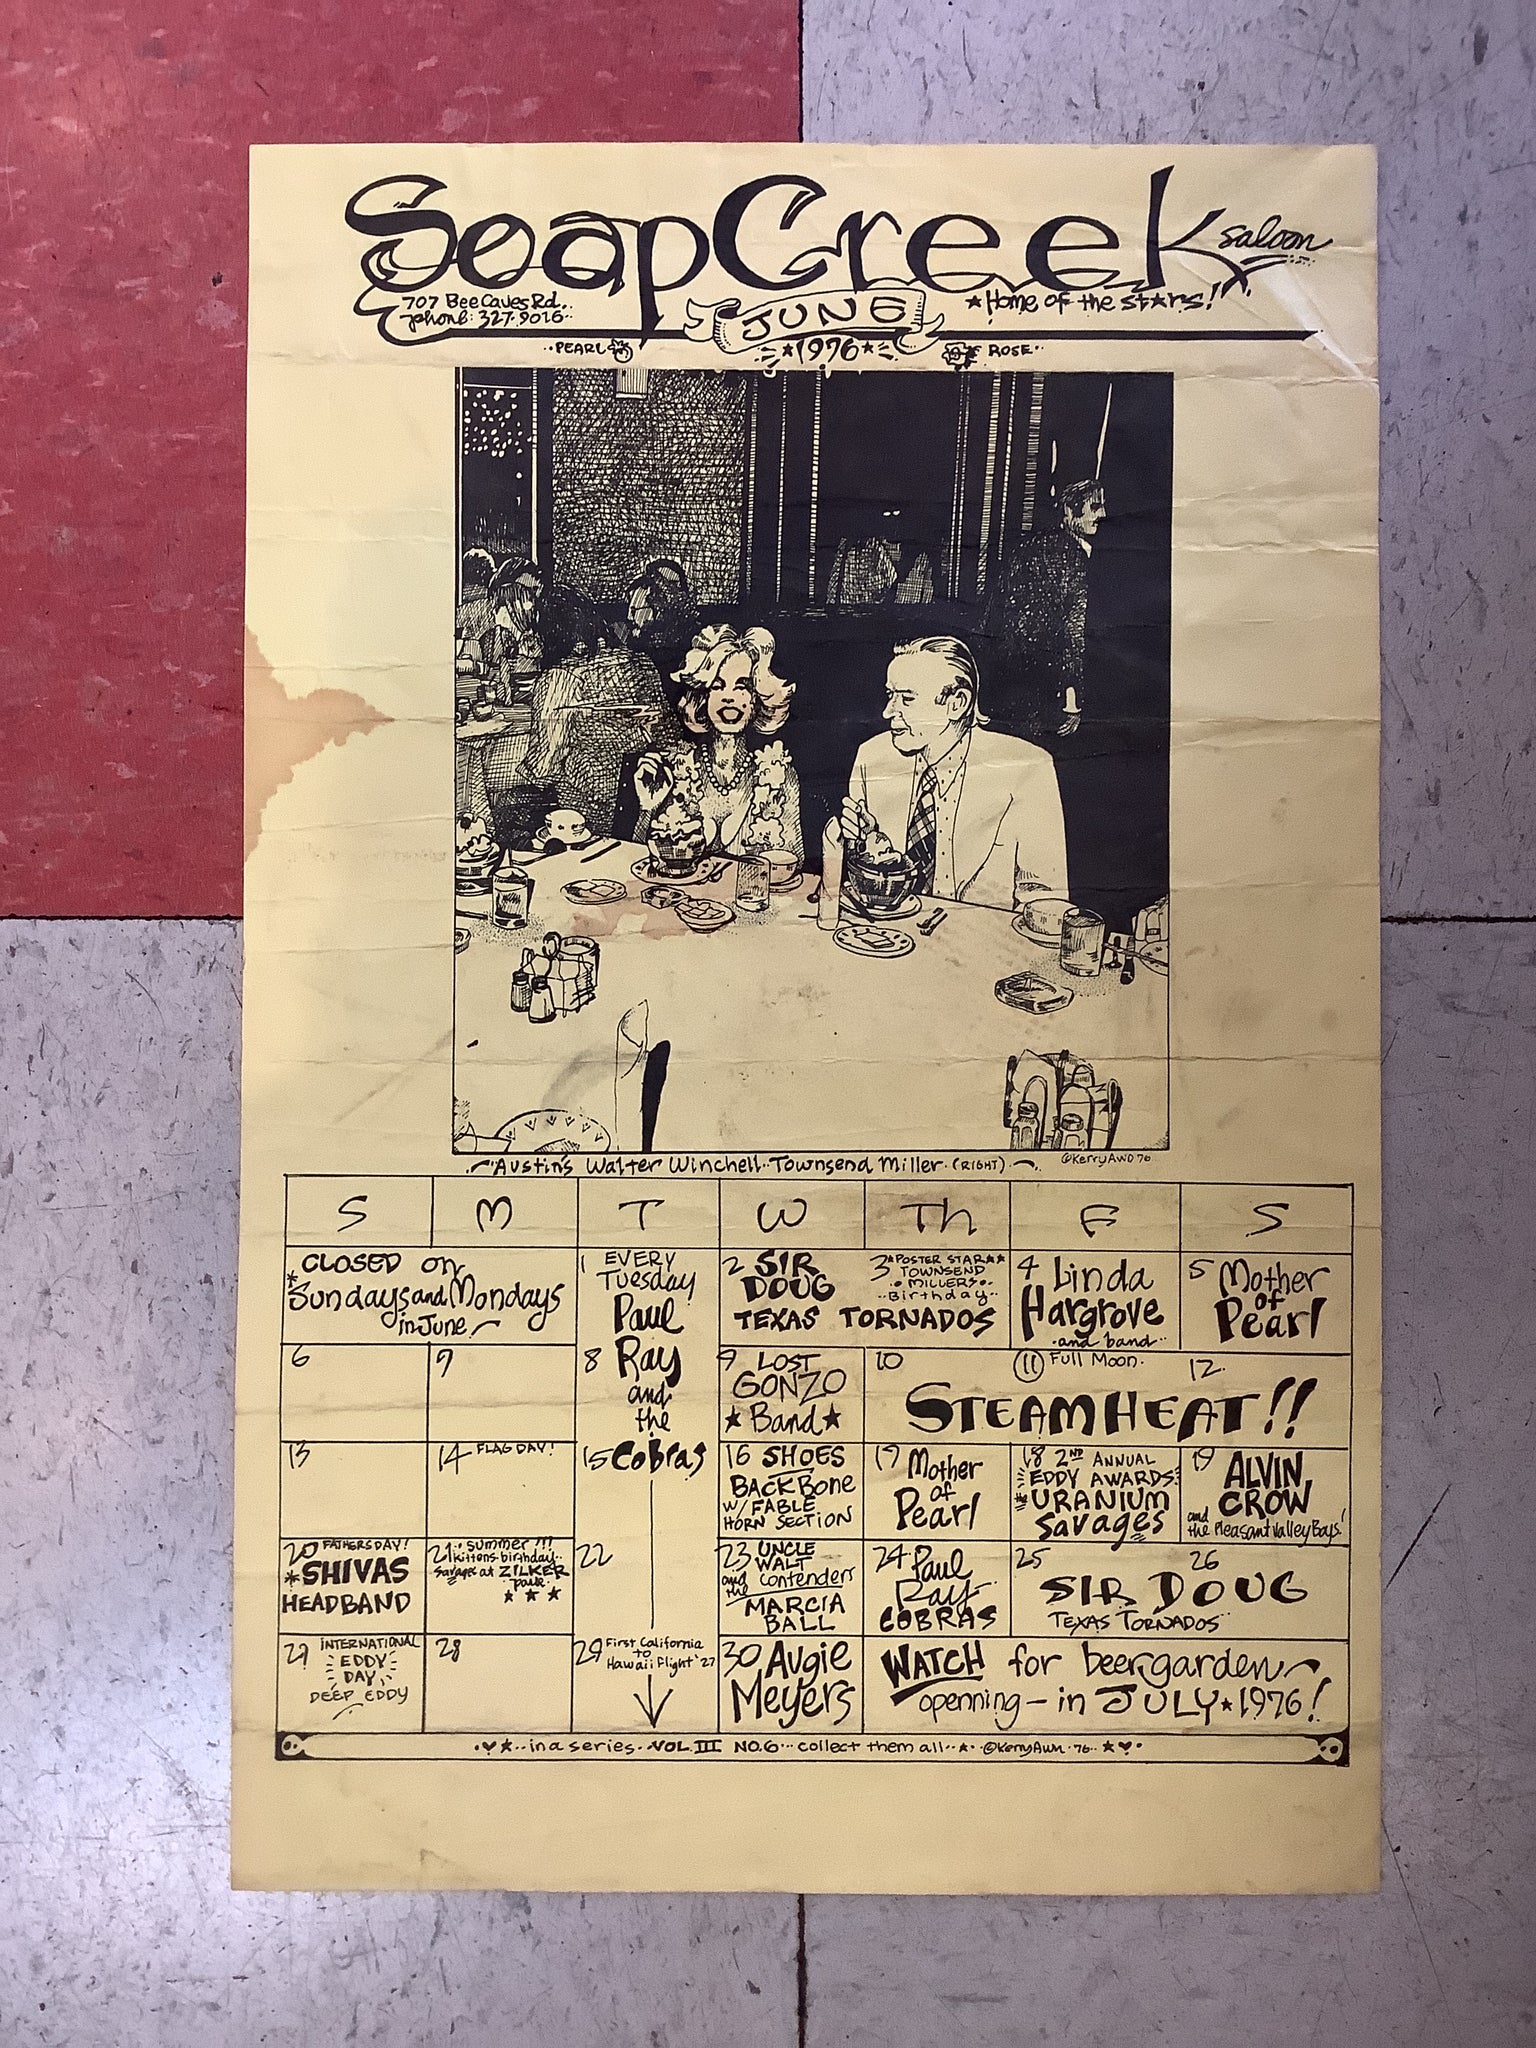 SoapCreek saloon
707 Bee Caves Rd..
phone: 327.9016
JUNE
★Home of the stars!
..PEARL
★1976★
ROSE..
Austin's Walter Winchell..Townsend Miller.(RIGHT)
©KerryAwn 76
S M T W Th F S
*CLOSED on
Sundays and Mondays
in June.
1 EVERY
Tuesday
Paul
Ray
and
the
Cobras
2 SIR
DOUG
TEXAS TORNADOS
3 ★POSTER STAR★★
TOWNSEND
MILLERS
Birthday
4 Linda
Hargrove
and band
5 Mother
of
Pearl
6
7
8
9 LOST
GONZO
★Band★
10
11 Full Moon.
12.
STEAMHEAT!!
13
14 FLAG DAY!
15
16 SHOES
BACKBone
W/ FABLE
HORN SECTION
17 Mother
of
Pearl
18 2ND ANNUAL
EDDY AWARDS
URANIUM
Savages
19 ALVIN
CROW
and
the Pleasant Valley Boys!
20 FATHERS DAY!
*SHIVAS
HEADBAND
21 summer!!!
kittens birthday..
Savages at ZILKER
park
★ ★ ★
22
23 UNCLE
WALT
and the Contenders
MARCIA
BALL
24 Paul
Ray
COBRAS
25
26
SIR DOUG
TEXAS TORNADOS
27 INTERNATIONAL
EDDY
DAY
DEEP EDDY
28
29 First California
to
Hawaii Flight '27
30 Augie
Meyers
WATCH for beergarden
openning — in JULY★1976!
♥★..in a series..VOL. III NO.6...collect them all..★..©KerryAwn.76..★♥.